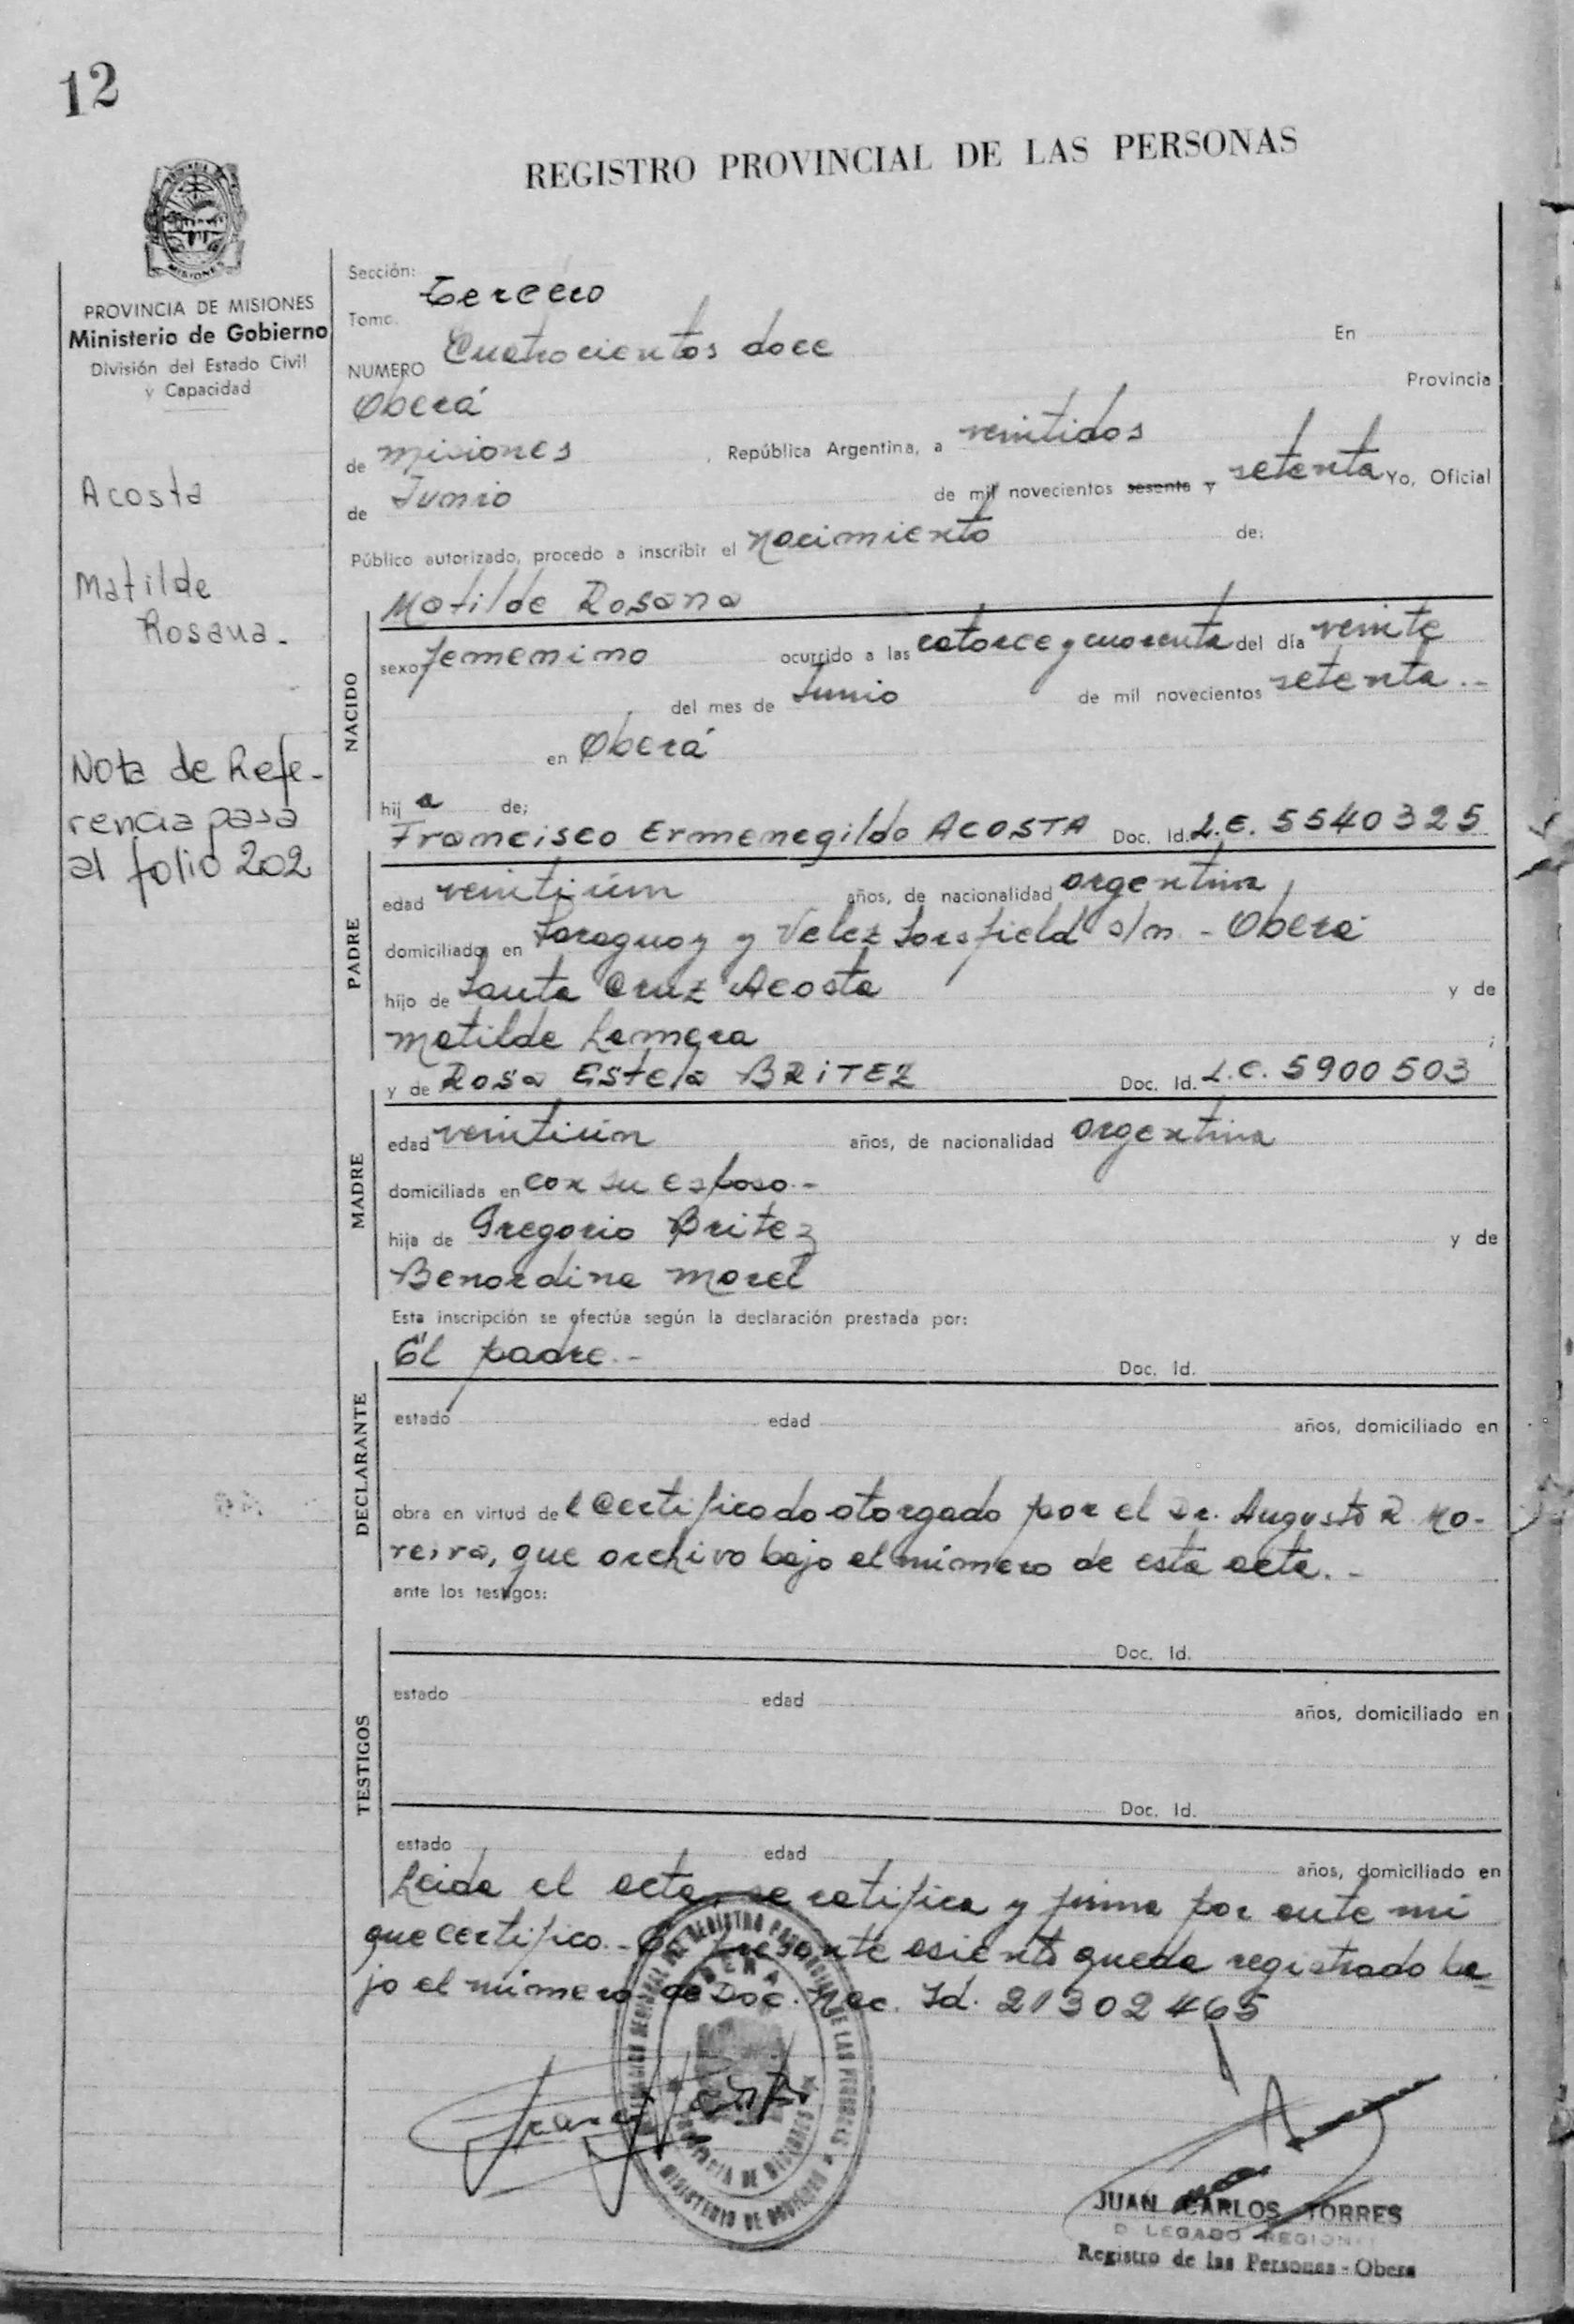 12
REGISTRO PROVINCIAL DE LAS PERSONAS
MISIONES
PROVINCIA DE MISIONES
Ministerio de Gobierno
División del Estado Civil
y Capacidad
Acosta
Matilde
Rosana.
Nota de Refe-
rencia pasa
al folio 202
Sección:
Tomo. Tercero
NUMERO Cuatrocientos doce En
Oberá Provincia
de Misiones, República Argentina, a veintidos
de Junio de mil novecientos sesenta y setenta Yo, Oficial
Público autorizado, procedo a inscribir el Nacimiento de:
Matilde Rosana
NACIDO
sexo femenino ocurrido a las catorce y cuarenta del día veinte
del mes de Junio de mil novecientos setenta.-
en Oberá
hij a de;
Francisco Ermenegildo ACOSTA Doc. Id. L.E. 5540325
PADRE
edad veintiún años, de nacionalidad argentina,
domiciliado en Paraguay y Velez Sarsfield s/n - Oberá
hijo de Santa Cruz Acosta y de
Matilde ;
y de Rosa Estela BRITEZ Doc. Id. L.C. 5900503
MADRE
edad veintiún años, de nacionalidad argentina
domiciliada en con su esposo.-
hija de Gregorio Britez y de
Benardina Morel
Esta inscripción se efectúa según la declaración prestada por:
El padre.- Doc. Id.
DECLARANTE
estado edad años, domiciliado en
obra en virtud de l Certificado otorgado por el Dr. Augusto R. Mo-
reira, que archivo bajo el número de esta acta.-
ante los testigos:
TESTIGOS
Doc. Id.
estado edad años, domiciliado en
Doc. Id.
estado edad años, domiciliado en
Leida el acta, se ratifica y firma por ante mi
que certifico.- El presente asiento queda registrado ba-
jo el número de Doc. Nac. Id. 21302465
REGISTRO PROVINCIAL DE LAS PERSONAS
OBERA
PROVINCIA DE MISIONES
MINISTERIO DE GOBIERNO
JUAN CARLOS TORRES
D LEGADO REGION
Registro de las Personas - Obera